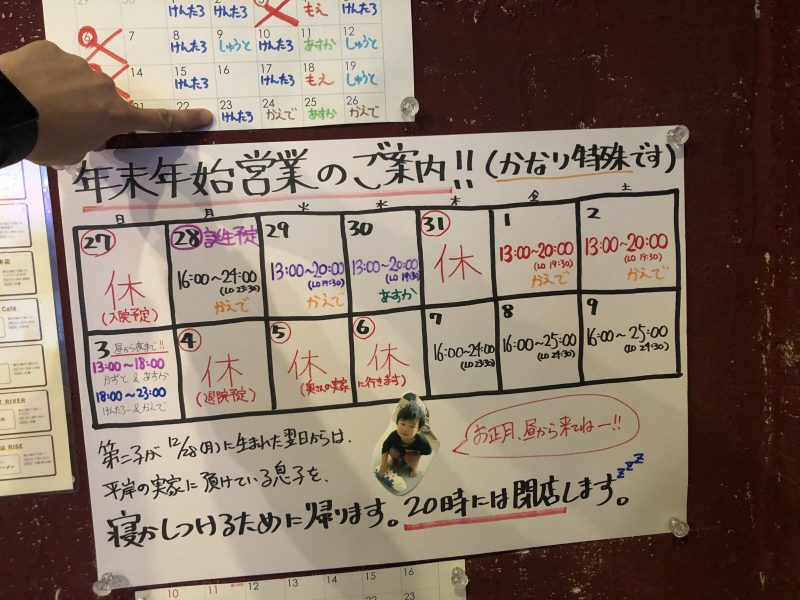 8 けんたろ 9 しゅうと 10 けんたろ 11 あすか 12 しゅうと
7
14 15 けんたろ 16 17 けんたろ 18 もえ 19 しゅうと
21 22 23 けんたろ 24 かえで 25 あすか 26 かえで
年末年始営業のご案内!! (かなり特殊です)
日 月 火 水 木 金 土
27 休 (入院予定)
28 誕生予定 16:00~24:00 (LO 23:30) かえで
29 13:00~20:00 (LO 19:30) かえで
30 13:00~20:00 (LO 19:30) あすか
31 休
1 13:00~20:00 (LO 19:30) かえで
2 13:00~20:00 (LO 19:30) かえで
3 昼から夜まで!! 13:00~18:00 かずと & あすか 18:00~23:00 けんたろー & かえで
4 休 (退院予定)
5 休 (奥さんの実家
6 休 に行きます)
7 16:00~24:00 (LO 23:30)
8 16:00~25:00 (LO 24:30)
9 16:00~25:00 (LO 24:30)
お正月、昼から来てねー!!
第二子が 12/28(月)に生まれた翌日からは、
平岸の実家に預けている息子を、
寝かしつけるために帰ります。20時には閉店します。zzz
10 11 12 13 14 15 16